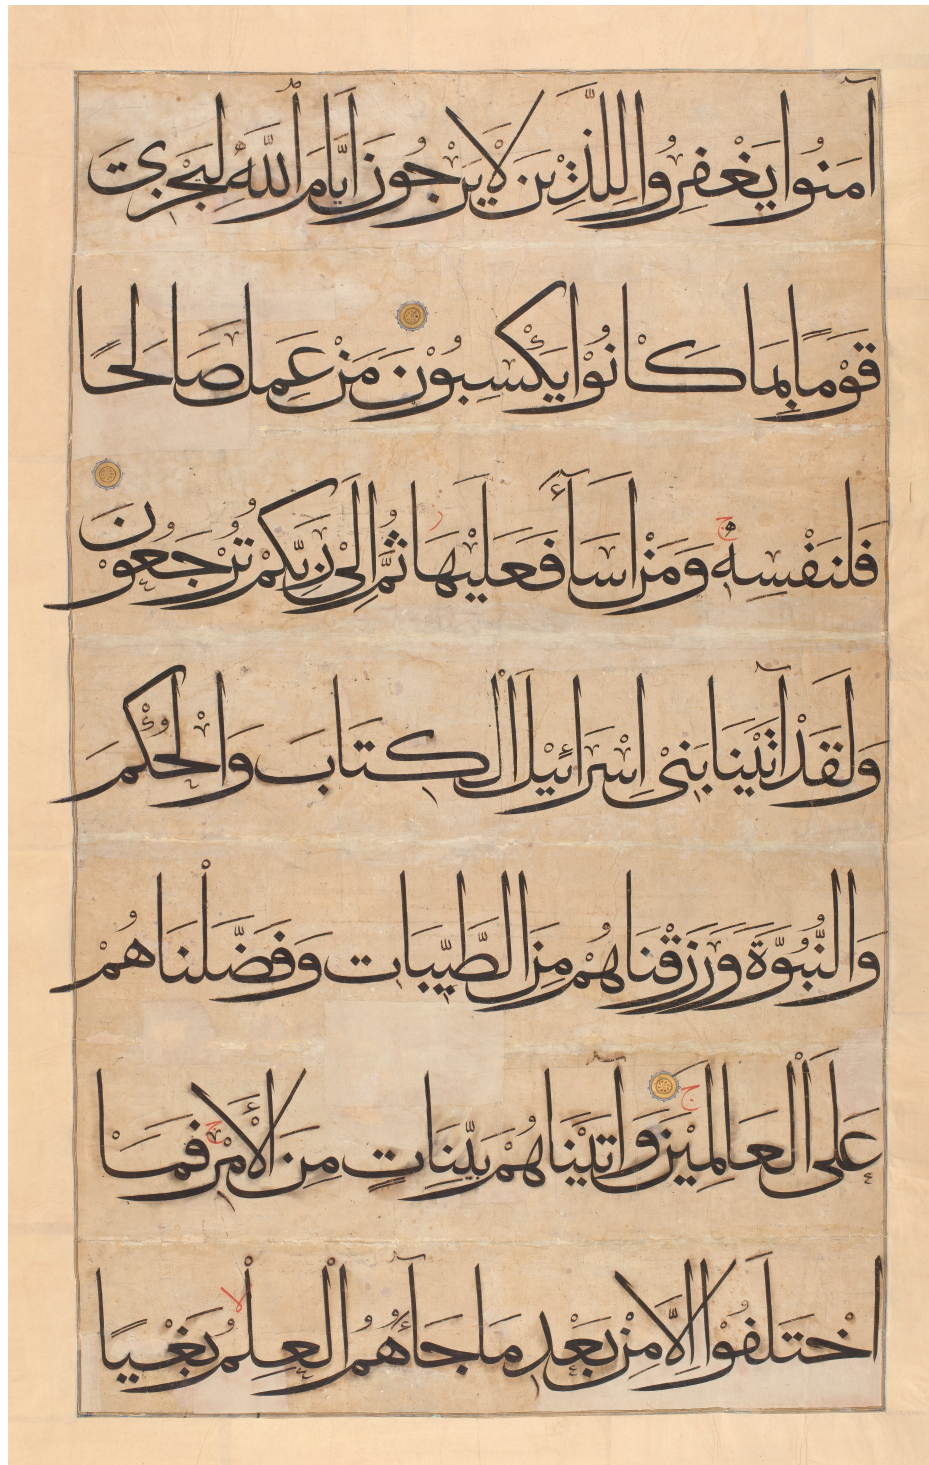 آمَنُوا يَغْفِرُوا لِلَّذِينَ لَا يَرْجُونَ أَيَّامَ اللَّهِ لِيَجْزِيَ
قَوْمًا بِمَا كَانُوا يَكْسِبُونَ مَنْ عَمِلَ صَالِحًا
فَلِنَفْسِهِ ج وَمَنْ أَسَآءَ فَعَلَيْهَا ز ثُمَّ إِلَىٰ رَبِّكُمْ تُرْجَعُونَ
وَلَقَدْ آتَيْنَا بَنِي إِسْرَائِيلَ الْكِتَابَ وَالْحُكْمَ
وَالنُّبُوَّةَ وَرَزَقْنَاهُمْ مِنَ الطَّيِّبَاتِ وَفَضَّلْنَاهُمْ
عَلَى الْعَالَمِينَ ج وَآتَيْنَاهُمْ بَيِّنَاتٍ مِنَ الْأَمْرِ ج فَمَا
اخْتَلَفُوا إِلَّا مِنْ بَعْدِ مَا جَآءَهُمُ الْعِلْمُ لا بَغْيًا